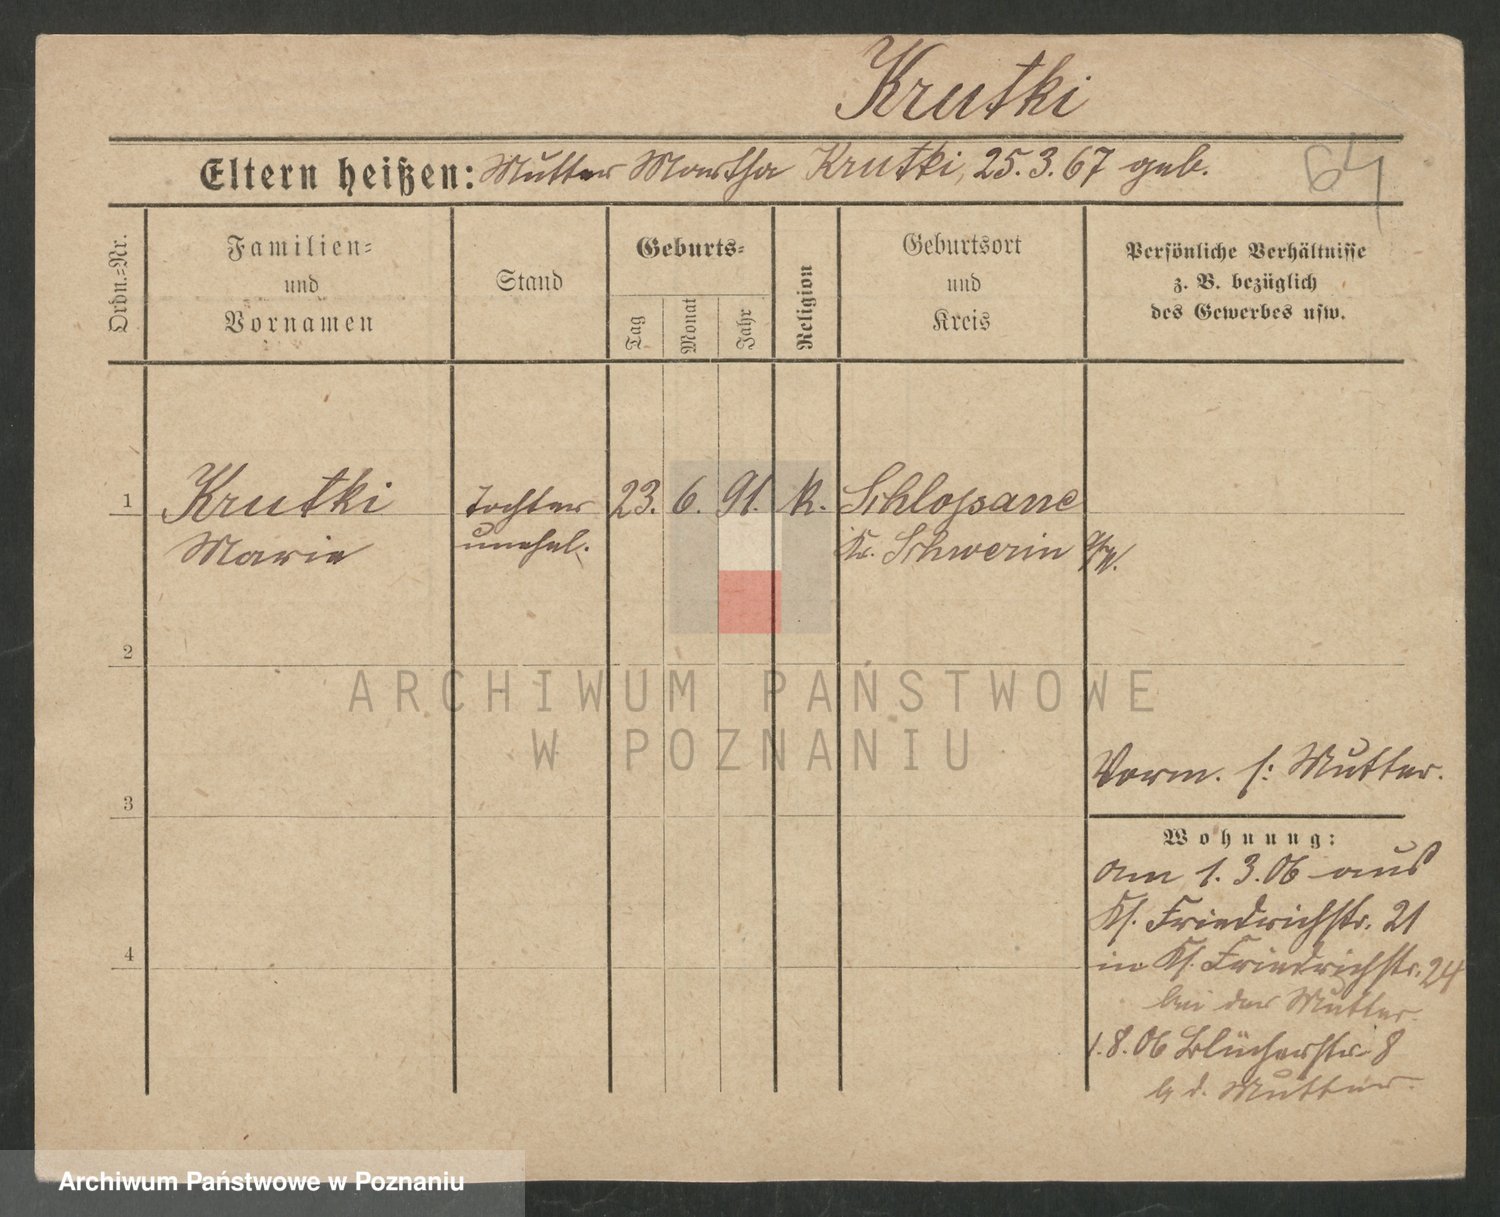 Krutki
Eltern heißen: Mutter Martha Krutki, 25.3.67 geb.
64
Ordn.=Nr.
Familien=
und
Vornamen
Stand
Geburts=
Tag
Monat
Jahr
Religion
Geburtsort
und
Kreis
Persönliche Verhältnisse
z. B. bezüglich
des Gewerbes usw.
1
Krutki
Marie
Tochter
unehel.
23. 6. 91. k.
Schlopane
Kr. Schwerin a/W.
2
ARCHIWUM PAŃSTWOWE
W POZNANIU
Vorm. s: Mutter.
3
Wohnung:
am 1.3.06 aus
Kl. Friedrichstr. 21
in Kl. Friedrichstr. 24
bei der Mutter.
4
1.8.06 Blücherstr. 8
b. d. Mutter.
Archiwum Państwowe w Poznaniu